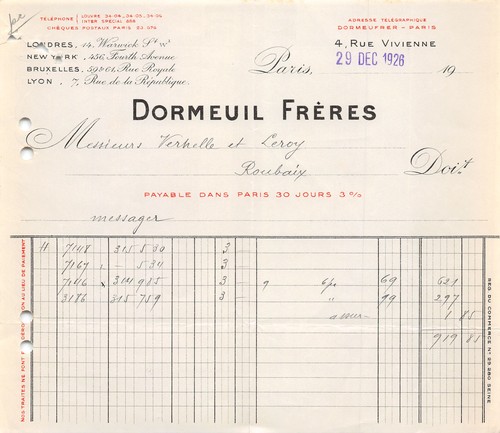 TÉLÉPHONE LOUVRE 34-04, 34-05, 34-06
INTER SPÉCIAL 259
CHÈQUES POSTAUX PARIS
LONDRES, 14, Warwick St W1
NEW YORK, 456, Fourth Avenue
BRUXELLES, 59 & 61, Rue Royale
LYON, 7, Rue de la République
ADRESSE TÉLÉGRAPHIQUE
DORMEUFRER - PARIS
4, RUE VIVIENNE
Paris, 29 DEC 1926 19
DORMEUIL FRÈRES
Messieurs Verhelle et Leroy
Roubaix Doit
PAYABLE DANS PARIS 30 JOURS 3%
messager
H 7148 315 530 3 -
7167 - 534 3 -
7146 x 314 985 3 - 9 69 621
3186 315 759 3 - " 99 297
1 85
919 85
NOS TRAITES NE SONT PAS DÉROGATION AU LIEU DE PAIEMENT
REG. DU COMMERCE Nº 29 280 SEINE